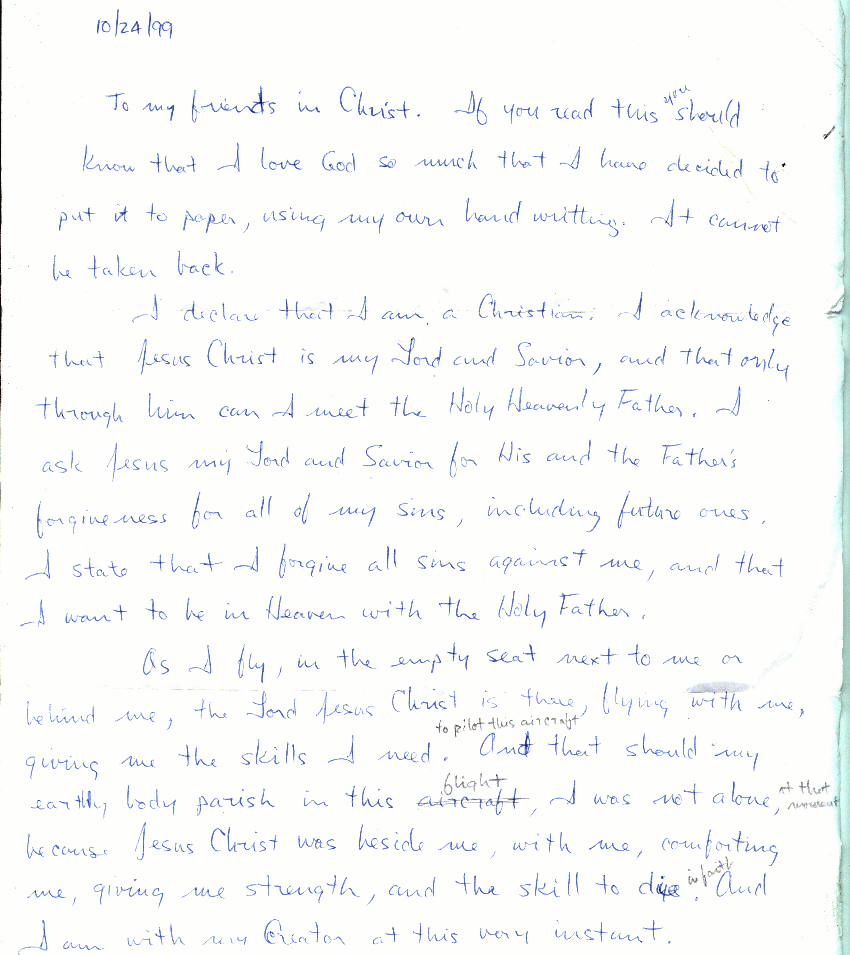 10/24/99
To my friends in Christ. If you read this you should
know that I love God so much that I have decided to
put it to paper, using my own hand writting. It cannot
be taken back.
I declare that I am a Christian. I acknowledge
that Jesus Christ is my Lord and Savior, and that only
through him can I meet the Holy Heavenly Father. I
ask Jesus my Lord and Savior for His and the Father's
forgiveness for all of my sins, including future ones.
I state that I forgive all sins against me, and that
I want to be in Heaven with the Holy Father.
As I fly, in the empty seat next to me or
behind me, the Lord Jesus Christ is there, flying with me,
giving me the skills I need to pilot this aircraft. And that should my
earthly body parish in this aircraft flight, I was not alone, at that moment
because Jesus Christ was beside me, with me, comforting
me, giving me strength, and the skill to die in faith. And
I am with my Creator at this very instant.